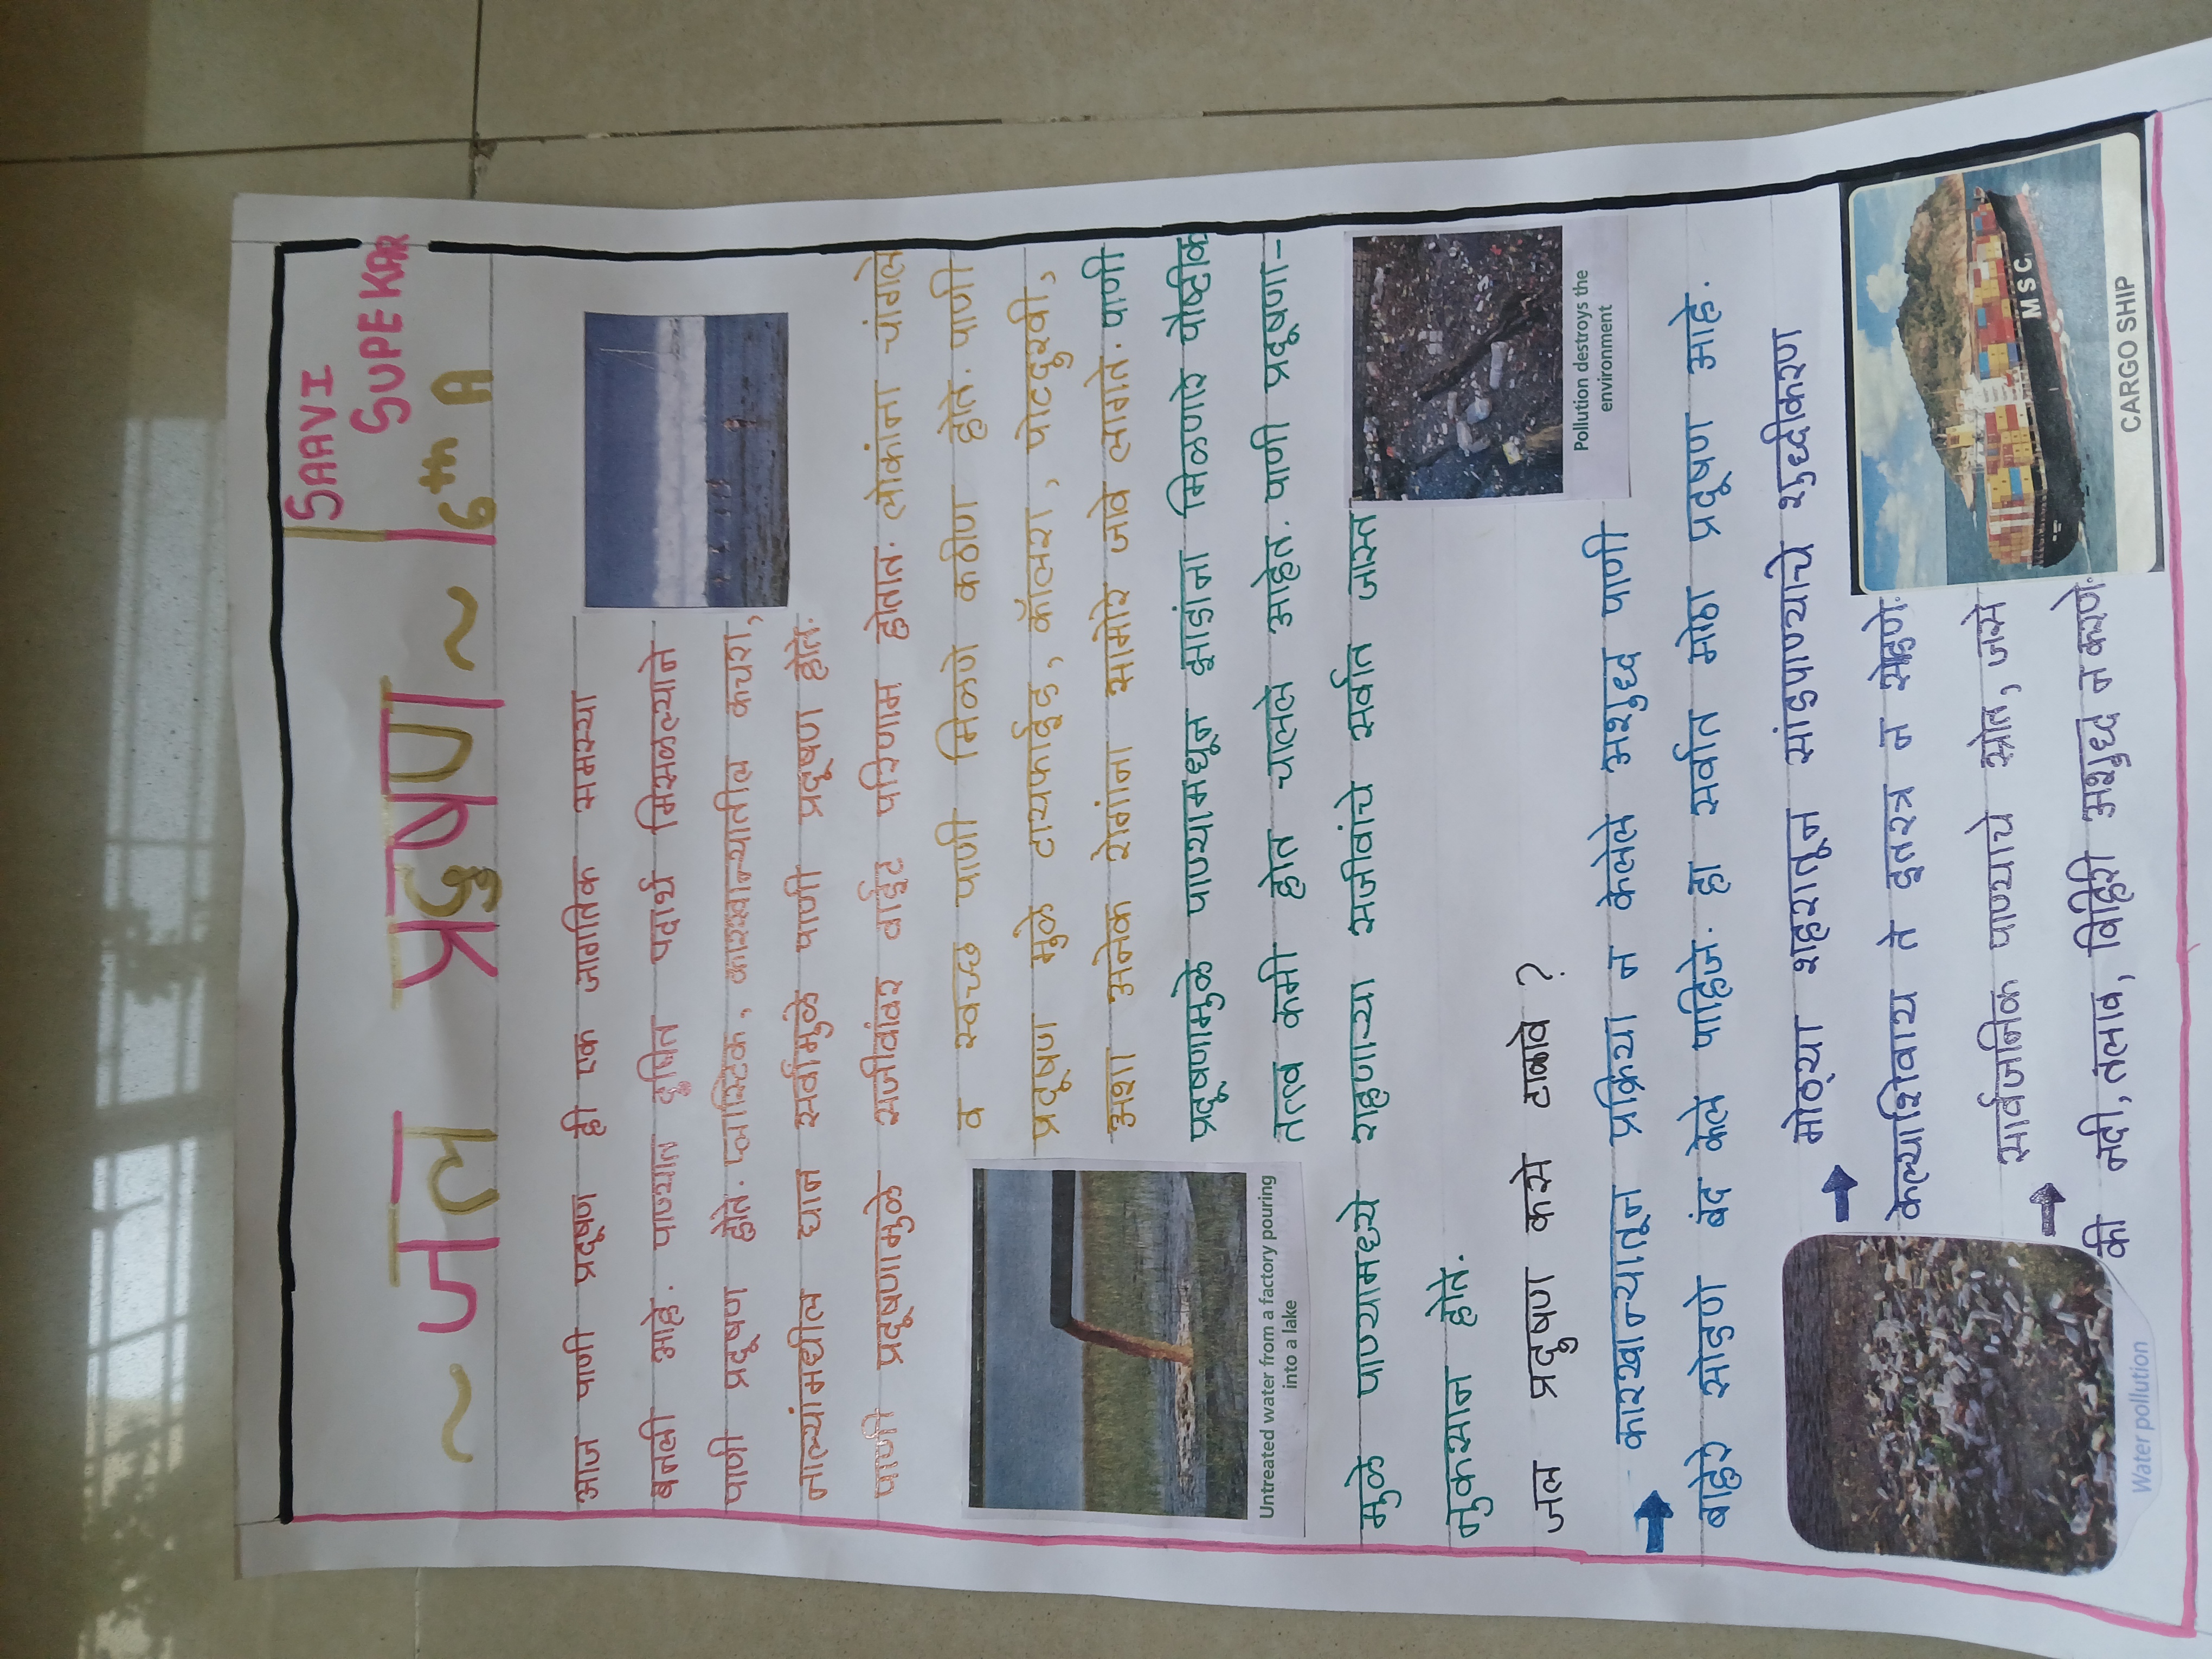 SAAVI
SUPEKAR
~ जल प्रदुषण ~
6th A
आज पाणी प्रदूषण ही एक जागतिक समस्या
बनली आहे. पाण्यात दुषित पदार्थ मिसळल्याने
पाणी प्रदूषण होते. प्लास्टिक, कारखान्यातील कचरा,
नाल्यांमधील घान सर्वांमुळे पाणी प्रदूषण होते.
पाणी प्रदूषणामुळे सजीवांवर वाईट परिणाम होतात. लोकांना चांगले
व स्वच्छ पाणी मिळणे कठीण होते. पाणी
प्रदूषण मुळे टायफाईड, कॉलरा, पोटदुखी,
अशा अनेक रोगांना सामोरे जावे लागते. पाणी
प्रदूषणामुळे पाण्यामधून झाडांना मिळणारे पौष्टीक
तत्त्व कमी होत चालले आहेत. पाणी प्रदूषणा-
मुळे पाण्यामध्ये राहणाऱ्या सजीवांचे सर्वात जास्त
नुकसान होते.
Untreated water from a factory pouring
into a lake
जल प्रदुषण कसे टाळावे ?
→ कारखान्यातून प्रक्रिया न केलेले अशुद्ध पाणी
बाहेरे सोडणे बंद केले पाहिजे. हा सर्वात मोठा प्रदूषण आहे.
Pollution destroys the
environment
→ मोठ्या शहरातून सांडपाण्याचे शुद्धीकरण
केल्याशिवाय ते इतरत्र न सोडणे.
→ सार्वजनिक पाण्याचे स्रोत, जसे
की नदी, तलाव, विहिरी अशुद्ध न करणे.
Water pollution
MSC
CARGO SHIP